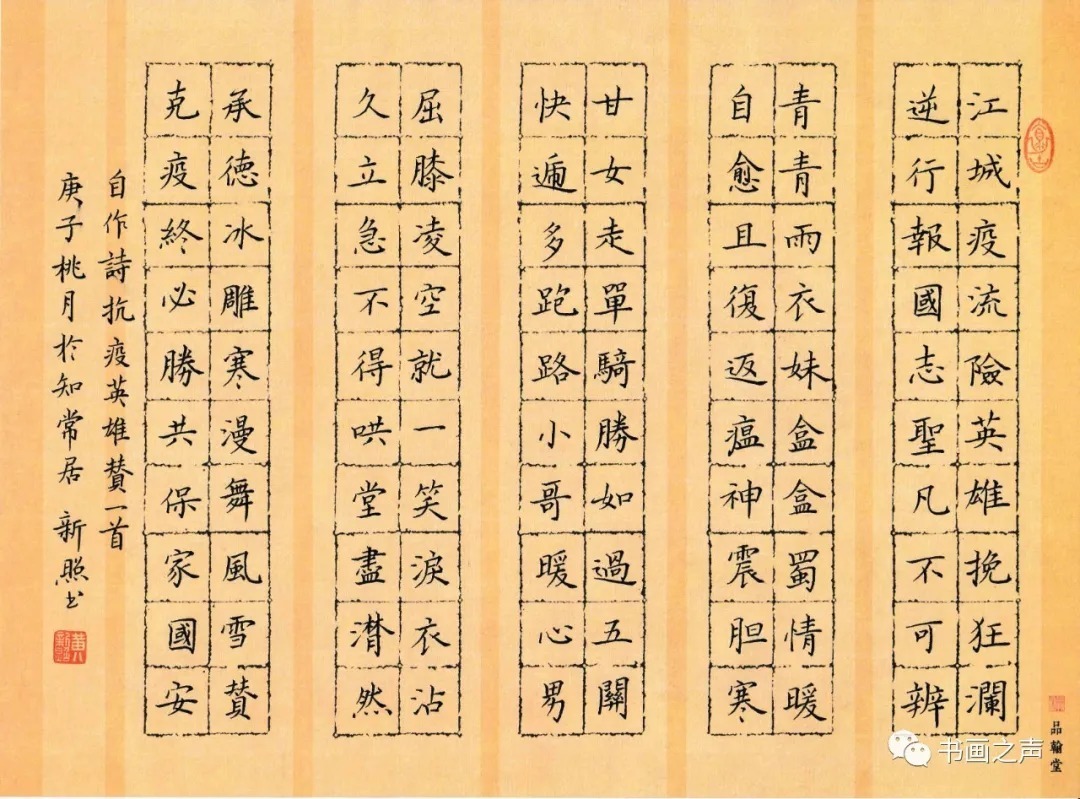 江城疫流險英雄挽狂瀾
逆行報國志聖凡不可辨
青青雨衣妹盒盒蜀情暖
自愈且復返瘟神震胆寒
甘女走單騎勝如過五關
快遞多跑路小哥暖心男
屈膝凌空就一笑淚衣沾
久立急不得哄堂盡潸然
承德冰雕寒漫舞風雪贊
克疫終必勝共保家國安
自作詩抗疫英雄贊一首
庚子桃月於知常居 新照书
品翰堂
书画之声